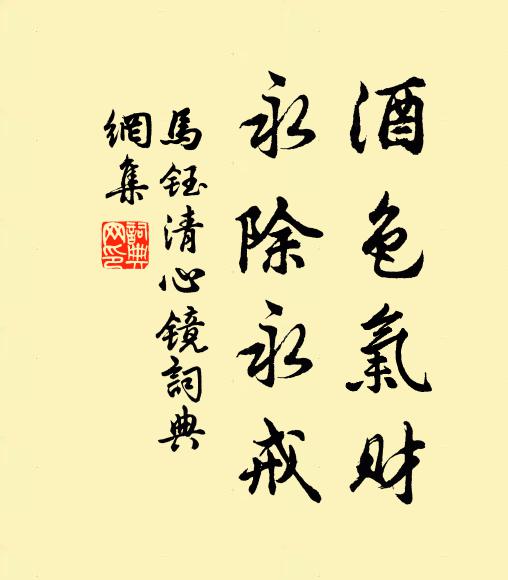 酒色氣財
永除永戒
馬鈺清心鏡詞典
網集
詞典
网印